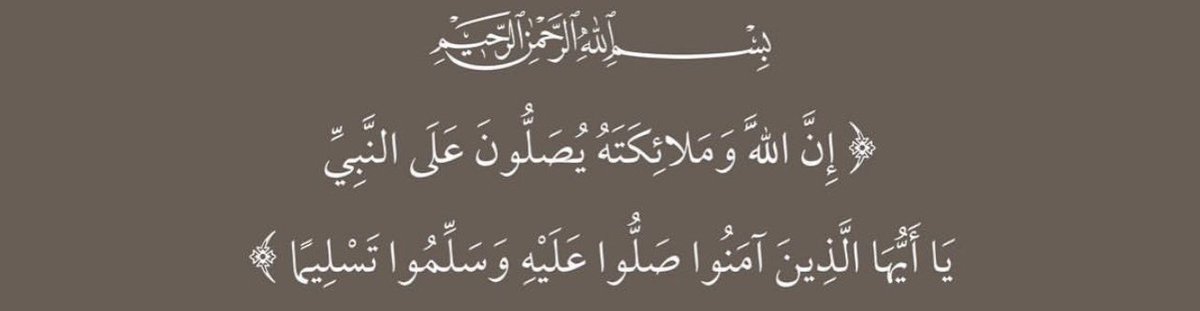 بِسْمِ اللهِ الرَّحْمٰنِ الرَّحِيْمِ
﴿ إِنَّ اللَّهَ وَمَلائِكَتَهُ يُصَلُّونَ عَلَى النَّبِيِّ
يَا أَيُّهَا الَّذِينَ آمَنُوا صَلُّوا عَلَيْهِ وَسَلِّمُوا تَسْلِيمًا ﴾